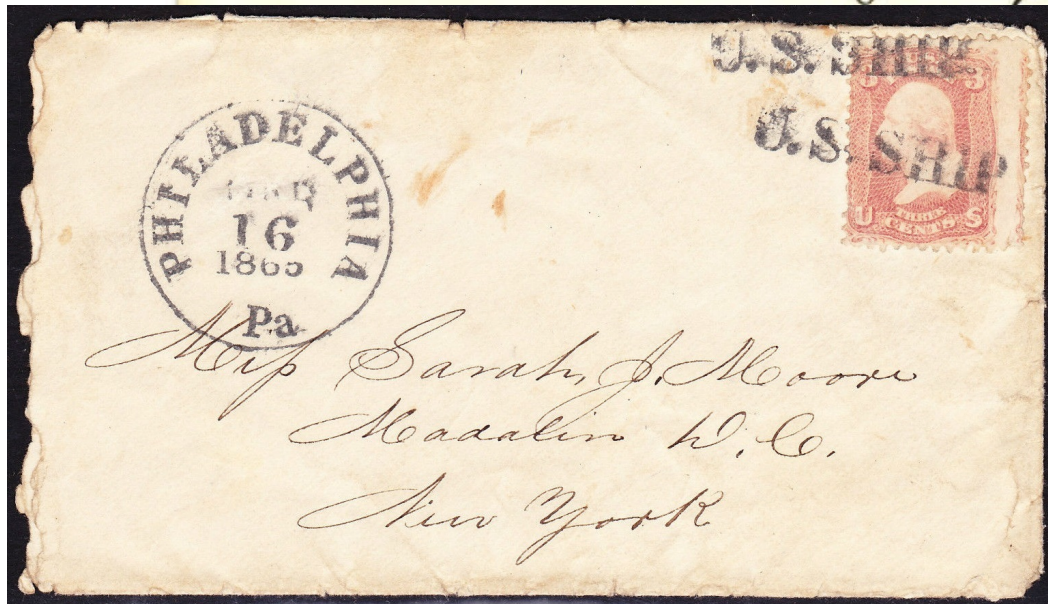 U.S. SHIP
U.S. SHIP
3 3
U THREE CENTS S
PHILADELPHIA
16
1865
Pa
Miſs Sarah J. Moore
Madalin D. C.
New York